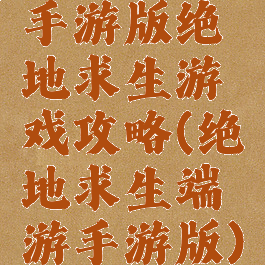 手游版绝
地求生游
戏攻略(绝
地求生端
游手游版)